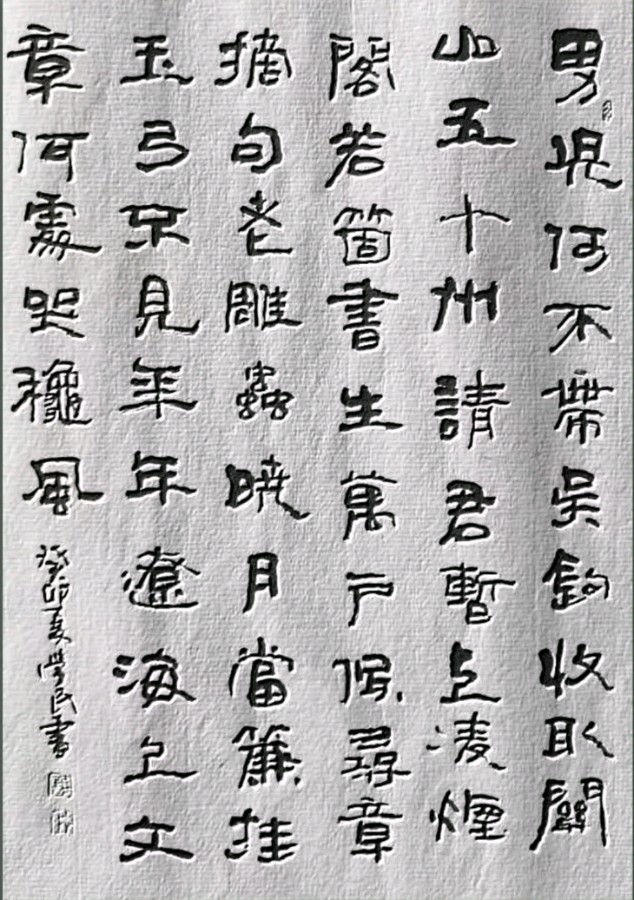 男兒何不帶吳鉤收取關
山五十州請君暫上凌煙
閣若箇書生萬戶侯尋章
摘句老雕蟲曉月當簾挂
玉弓不見年年遼海上文
章何處哭龝風
癸卯夏學民書